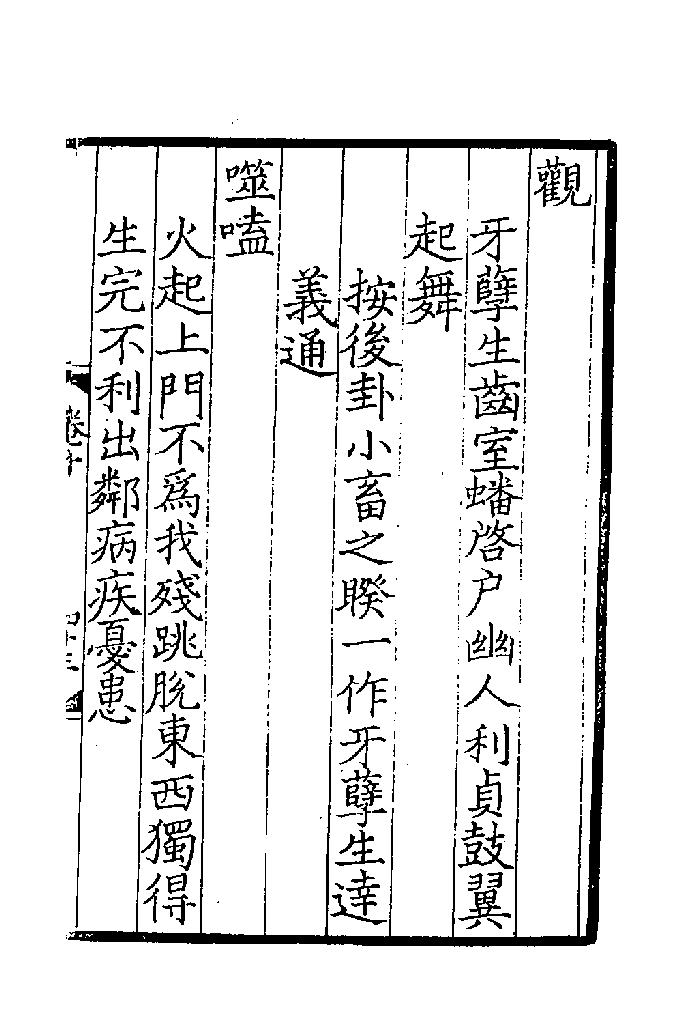 觀
牙孽生齒室蟠啓户幽人利貞鼓翼
起舞
按後卦小畜之睽一作牙孽生達
義通
噬嗑
火起上門不爲我殘跳脫東西獨得
生完不利出鄰病疾憂患
卷十
四十三